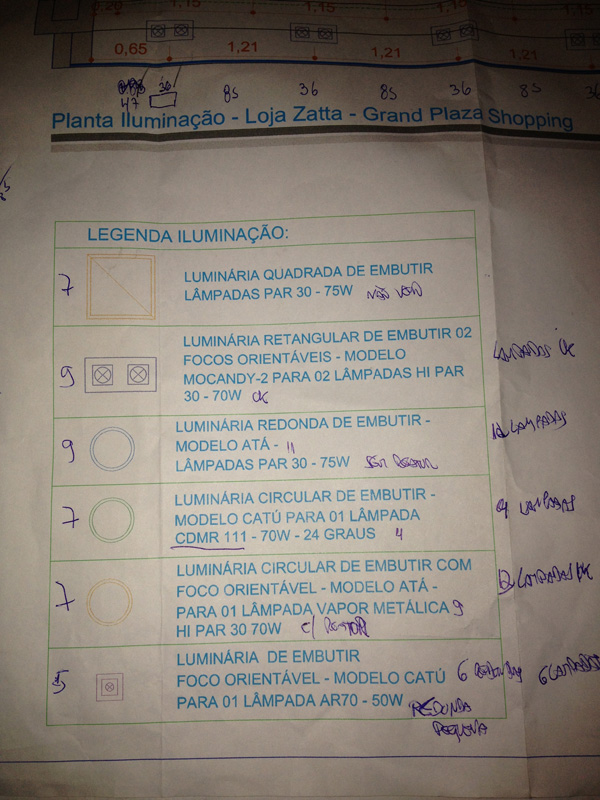 0.20 1,15 1,15
0,65 1,21 1,21 1,21
36
47 85 36 85 36 85 36
Planta Iluminação - Loja Zatta - Grand Plaza Shopping
LEGENDA ILUMINAÇÃO:
7 LUMINÁRIA QUADRADA DE EMBUTIR
LÂMPADAS PAR 30 - 75W NÃO VEIO
LUMINÁRIA RETANGULAR DE EMBUTIR 02
9 FOCOS ORIENTÁVEIS - MODELO LAMPADAS OK
MOCANDY-2 PARA 02 LÂMPADAS HI PAR
30 - 70W OK
LUMINÁRIA REDONDA DE EMBUTIR -
9 MODELO ATÁ - 11 LAMPADAS
LÂMPADAS PAR 30 - 75W
LUMINÁRIA CIRCULAR DE EMBUTIR -
7 MODELO CATÚ PARA 01 LÂMPADA LAMPADAS
CDMR 111 - 70W - 24 GRAUS 4
LUMINÁRIA CIRCULAR DE EMBUTIR COM
7 FOCO ORIENTÁVEL - MODELO ATÁ - 12 LAMPADAS OK
PARA 01 LÂMPADA VAPOR METÁLICA 9
HI PAR 30 70W C/ REATOR
LUMINÁRIA DE EMBUTIR
5 FOCO ORIENTÁVEL - MODELO CATÚ 6 6 LAMPADAS
PARA 01 LÂMPADA AR70 - 50W REDONDA
PEQUENA